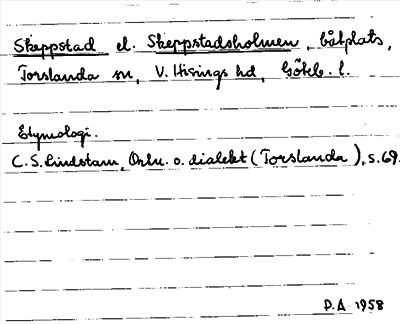 Skeppstad el. Skeppstadsholmen, båtplats,
Torslanda sn, V. Hisings hd, Göteb. l.
Etymologi.
C. S. Lindstam, Ortn. o. dialekt (Torslanda), s. 69.
D.A 1958